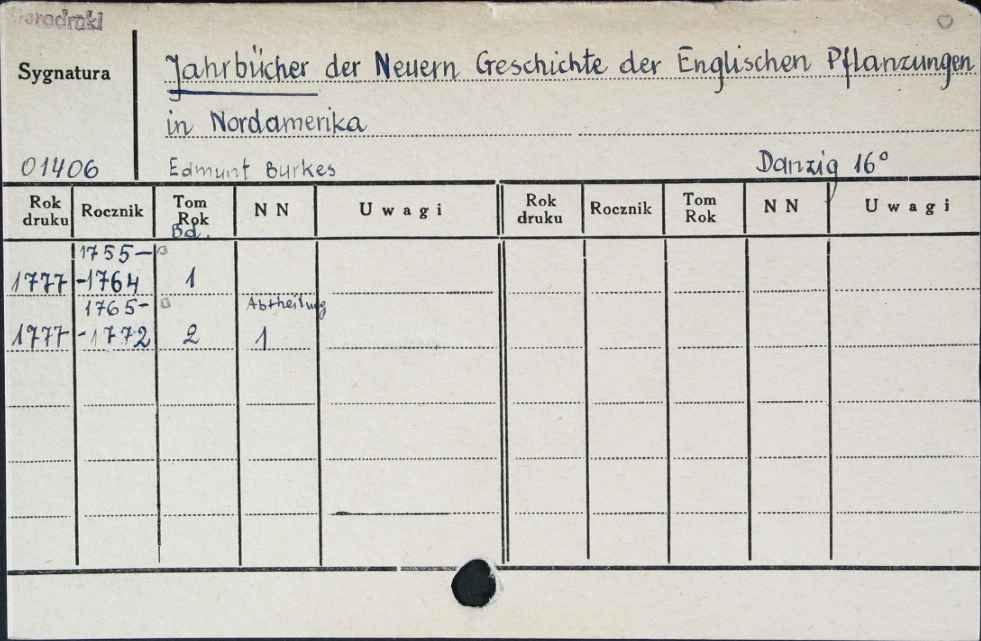 Starodruki
Sygnatura
Jahrbücher der Neuern Geschichte der Englischen Pflanzungen
in Nordamerika
01406
Edmunt Burkes
Danzig 16°
Rok druku Rocznik Tom Rok Bd. N N Uwagi Rok druku Rocznik Tom Rok N N Uwagi
1755-
1777 -1764 1
1765- Abtheilung
1777 -1772 2 1